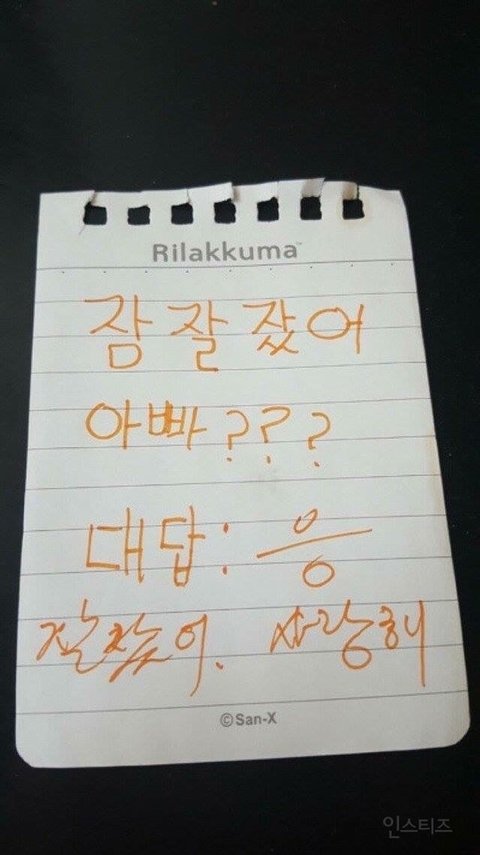 Rilakkuma™
잠 잘 잤어
아빠???
대답: 응
잘잤어. 사랑해
©San-X
인스티즈